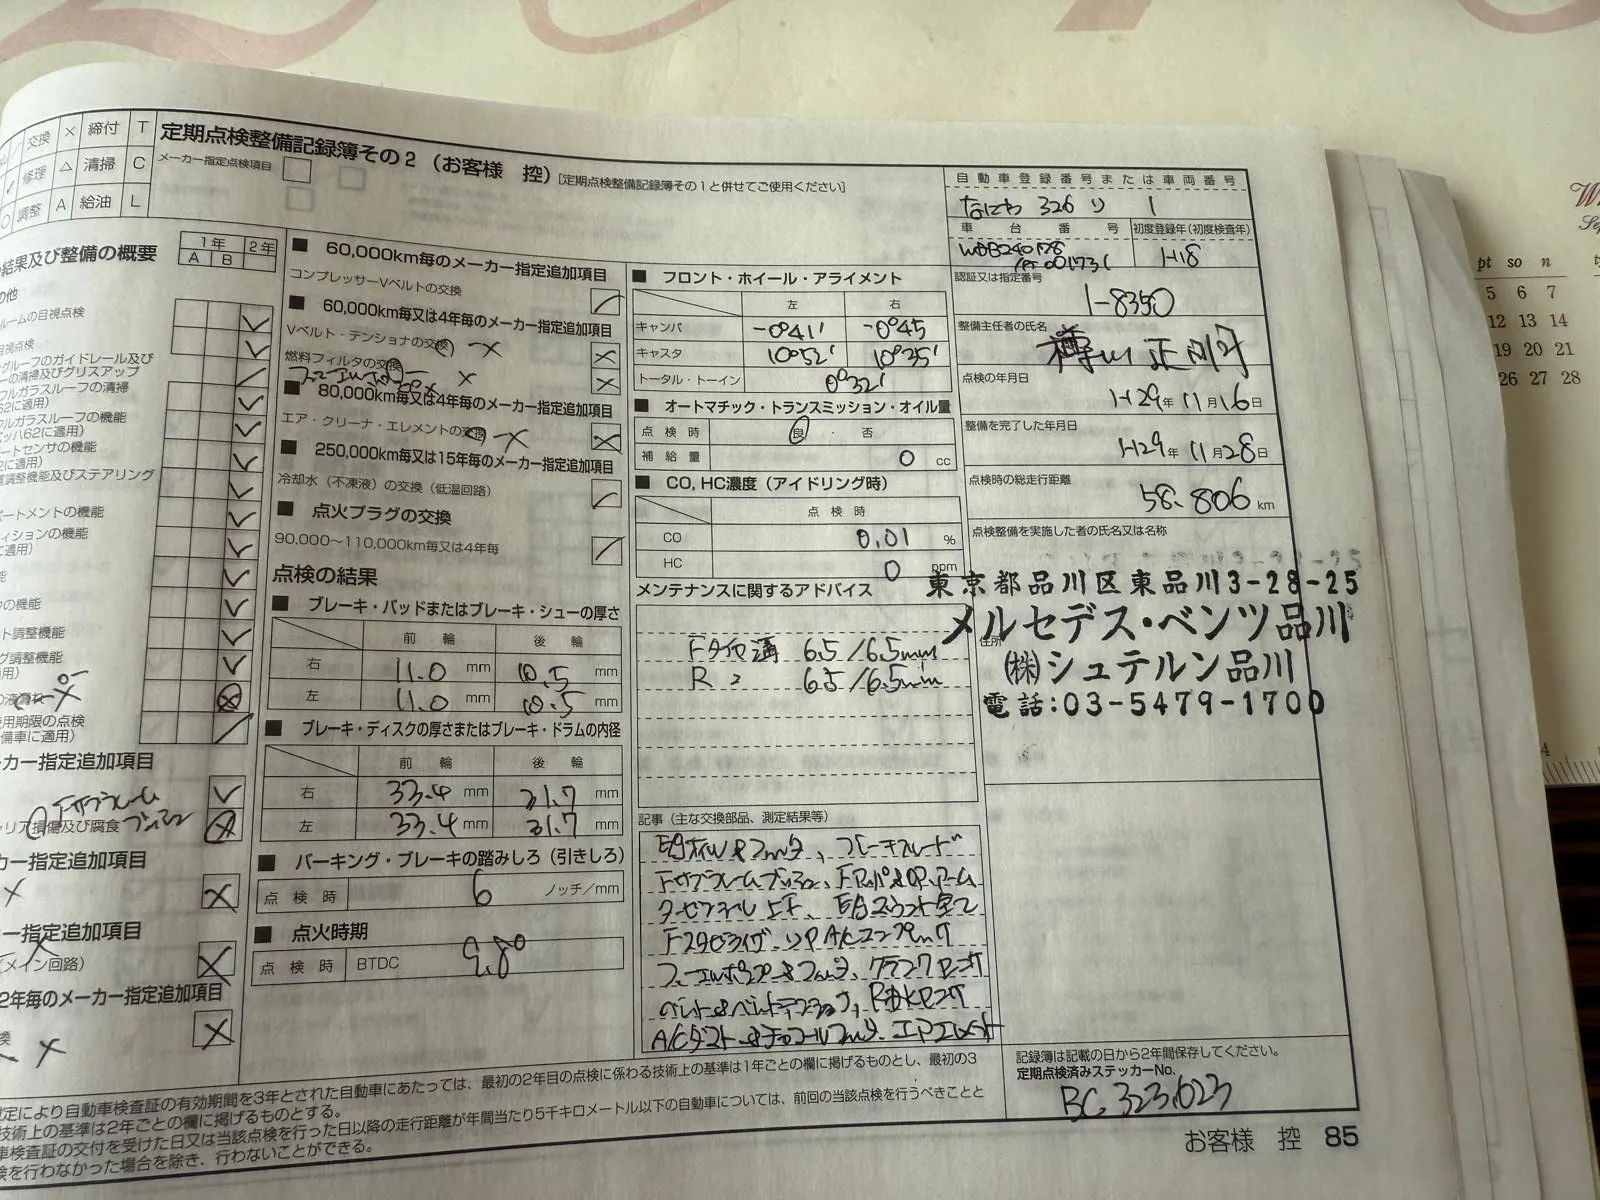 交換 × 締付 T
修理 △ 清掃 C
調整 A 給油 L
定期点検整備記録簿その2(お客様 控)[定期点検整備記録簿その1と併せてご使用ください]
メーカー指定点検項目
結果及び整備の概要
1年 2年
A B
ルームの目視点検
目視点検
グルーフのガイドレール及び
の清掃及びグリスアップ
フルガラスルーフの清掃
62に適用)
フルガラスルーフの機能
ベッハ62に適用)
ートセンサの機能
2に適用)
調整機能及びステアリング
ートメントの機能
ィションの機能
に適用)
の機能
ト調整機能
グ調整機能
用)
使用期限の点検
備車に適用)
カー指定追加項目
Fサブフレーム
ャリア損傷及び腐食 ブッシュ
カー指定追加項目
ー指定追加項目
(メイン回路)
2年毎のメーカー指定追加項目
換
■ 60,000km毎のメーカー指定追加項目
コンプレッサーVベルトの交換
■ 60,000km毎又は4年毎のメーカー指定追加項目
Vベルト・テンショナの交換 ×
燃料フィルタの交換
×
■ 80,000km毎又は4年毎のメーカー指定追加項目
エア・クリーナ・エレメントの交換 ×
■ 250,000km毎又は15年毎のメーカー指定追加項目
冷却水(不凍液)の交換(低温回路)
■ 点火プラグの交換
90,000〜110,000km毎又は4年毎
点検の結果
■ ブレーキ・パッドまたはブレーキ・シューの厚さ
前輪 後輪
右 11.0 mm 10.5 mm
左 11.0 mm 10.5 mm
■ ブレーキ・ディスクの厚さまたはブレーキ・ドラムの内径
前輪 後輪
右 33.4 mm 21.7 mm
左 33.4 mm 21.7 mm
■ パーキング・ブレーキの踏みしろ(引きしろ)
点検時 6 ノッチ/mm
■ 点火時期
点検時 BTDC 9.8°
■ フロント・ホイール・アライメント
左 右
キャンバ -0°41' -0°45
キャスタ 10°52' 10°35'
トータル・トーイン 0°32'
■ オートマチック・トランスミッション・オイル量
点検時 良・否
補給量 0 cc
■ CO, HC濃度(アイドリング時)
点検時
CO 0.01 %
HC 0 ppm
メンテナンスに関するアドバイス
Fタイヤ溝 6.5/6.5mm
R 〃 6.5/6.5mm
記事(主な交換部品、測定結果等)
EGオイル&フィルタ、ブレーキフルード
Fサブフレームブッシュ、FロアアームアッパーアームRead
EGマウント全て
Fスタビライザ、
クランク
ベルト&ベルトテンショナ、
A/Cダスト&チャコールフィルタ、エアエレメント
自動車登録番号または車両番号
なにわ 326 り 1
車台番号 初度登録年(初度検査年)
WDB240178
1A 001731 H18
認証又は指定番号
1-8350
整備主任者の氏名
点検の年月日
H29年11月16日
整備を完了した年月日
H29年11月28日
点検時の総走行距離
58,806 km
点検整備を実施した者の氏名又は名称
東京都品川区東品川3-28-25
メルセデス・ベンツ品川
住所
(株)シュテルン品川
電話:03-5479-1700
記録簿は記載の日から2年間保存してください。
定期点検済みステッカーNo.
BC 323,023
定により自動車検査証の有効期間を3年とされた自動車にあたっては、最初の2年目の点検に係わる技術上の基準は1年ごとの欄に掲げるものとし、最初の3
技術上の基準は2年ごとの欄に掲げるものとする。
車検査証の交付を受けた日又は当該点検を行った日以降の走行距離が年間当たり5千キロメートル以下の自動車については、前回の当該点検を行うべきこと
検を行わなかった場合を除き、行わないことができる。
お客様 控 85
pt so n
5 6 7
12 13 14
19 20 21
26 27 28